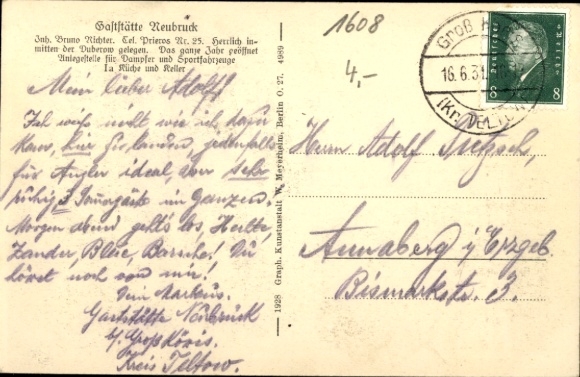 Gaststätte Neubruck
Inh. Bruno Richter. Tel. Prieros Nr. 25. Herrlich in-
mitten der Duberow gelegen. Das ganze Jahr geöffnet
Anlegestelle für Dampfer und Sportfahrzeuge
Ia Küche und Keller
1608
4,-
Groß
16.6.31.
(Kr. TELTOW)
Deutsches Reich
8 8
Mein lieber Adolf!
Ich weiß nicht wie ich dazu
kam, hier zu landen, jedenfalls
für Angler ideal, aber sehr
ruhig, 3 Sommergäste im Ganzen.
Morgen abend geht's los, Hechte,
Zander, Bleie, Barsche! Du
hörst noch von mir!
Dein Markus.
Gaststätte Neubrück
b/ Groß Köris.
Kreis Teltow.
1928 Graph. Kunstanstalt W. Meyerheim, Berlin O. 27. 4989
Herrn Adolf
Annaberg i/Erzgeb.
Bismarkstr. 3.